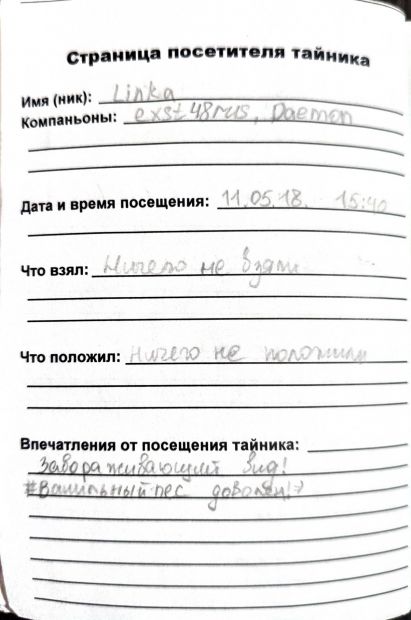 Страница посетителя тайника
Имя (ник): Linka
Компаньоны: exst48rus, Daemon
Дата и время посещения: 11.05.18. 15:40
Что взял: Ничего не взяли
Что положил: Ничего не положили
Впечатления от посещения тайника:
Завораживающий вид!
#Ванильный пес доволен!